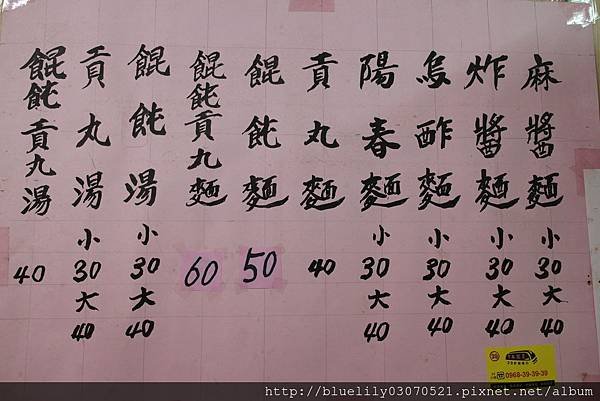 麻醬麵 小30 大40
炸醬麵 小30 大40
烏酢麵 小30 大40
陽春麵 小30 大40
貢丸麵 40
餛飩麵 50
餛飩貢丸麵 60
餛飩湯 小30 大40
貢丸湯 小30 大40
餛飩貢丸湯 40
0968-39-39-39
http://bluelily03070521.pixnet.net/album